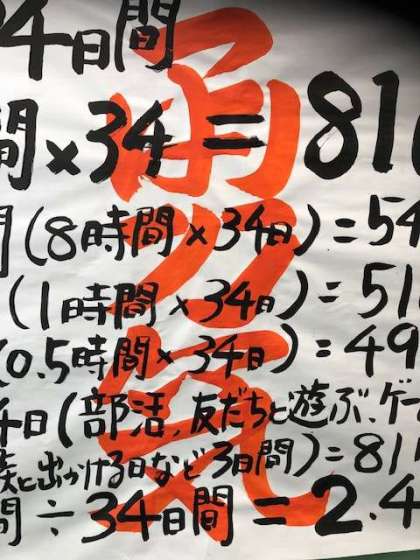 4日間
間×34=81
間(8時間×34日)=54
(1時間×34日)=51
(0.5時間×34日)=49
4日(部活,友だちと遊ぶ、ゲー
族と出かける日など3日間)=81
間÷34日間=2.4
勇気